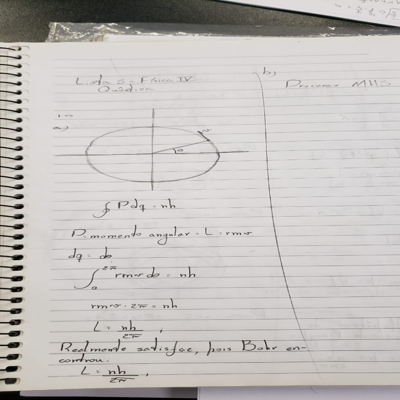 Lista 2 - Física IV
Quântica
1-
a)
P
θ
∮ Pdq = nh
P. momento angular = L = rmv
dq = dθ
∫₀^2π rmv dθ = nh
rmv · 2π = nh
L = nh/2π ,
Realmente satisfaz, pois Bohr en-
controu.
L = nh/2π ,
b)
MHS